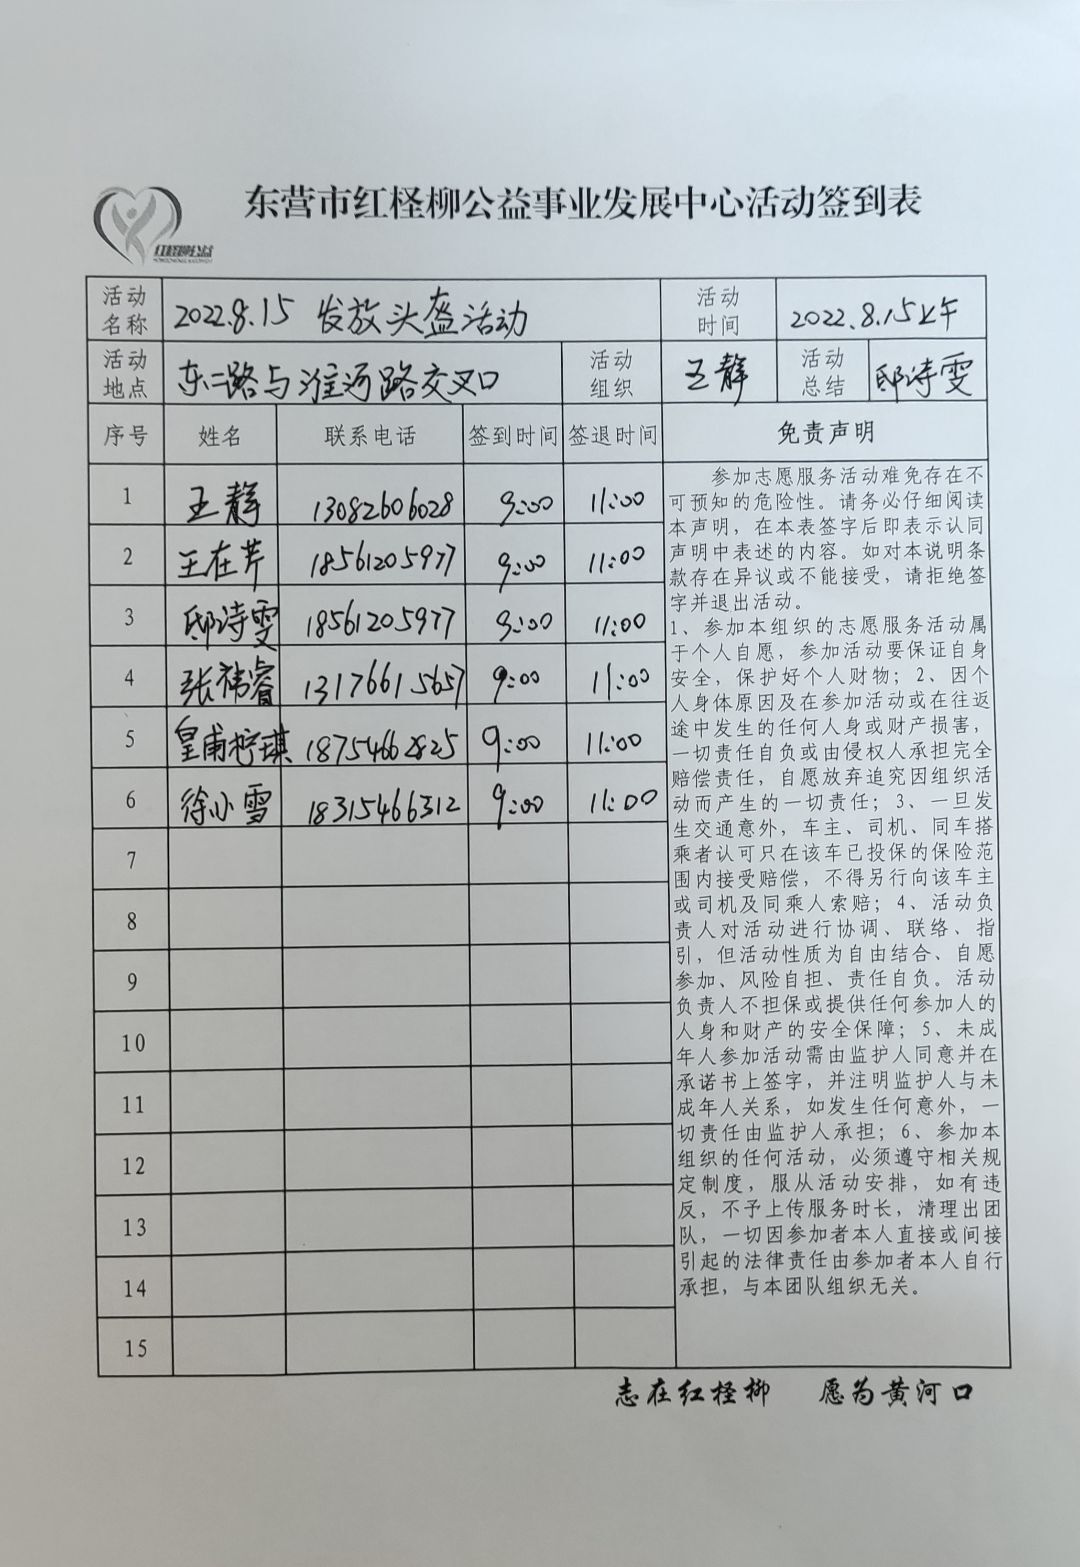 东营市红柽柳公益事业发展中心活动签到表
红柽柳公益
活动名称 2022.8.15 发放头盔活动 活动时间 2022.8.15上午
活动地点 东二路与淮河路交叉口 活动组织 王静 活动总结 邸诗雯
序号 姓名 联系电话 签到时间 签退时间 免责声明
1 王静 13082606028 9:00 11:00
2 王在芹 18561205977 9:00 11:00
3 邸诗雯 18561205977 9:00 11:00
4 张祎睿 13176615657 9:00 11:00
5 皇甫柠琪 18754662825 9:00 11:00
6 徐小雪 18315466312 9:00 11:00
7
8
9
10
11
12
13
14
15
参加志愿服务活动难免存在不
可预知的危险性。请务必仔细阅读
本声明，在本表签字后即表示认同
声明中表述的内容。如对本说明条
款存在异议或不能接受，请拒绝签
字并退出活动。
1、参加本组织的志愿服务活动属
于个人自愿，参加活动要保证自身
安全，保护好个人财物；2、因个
人身体原因及在参加活动或在往返
途中发生的任何人身或财产损害，
一切责任自负或由侵权人承担完全
赔偿责任，自愿放弃追究因组织活
动而产生的一切责任；3、一旦发
生交通意外，车主、司机、同车搭
乘者认可只在该车已投保的保险范
围内接受赔偿，不得另行向该车主
或司机及同乘人索赔；4、活动负
责人对活动进行协调、联络、指
引，但活动性质为自由结合、自愿
参加、风险自担、责任自负。活动
负责人不担保或提供任何参加人的
人身和财产的安全保障；5、未成
年人参加活动需由监护人同意并在
承诺书上签字，并注明监护人与未
成年人关系，如发生任何意外，一
切责任由监护人承担；6、参加本
组织的任何活动，必须遵守相关规
定制度，服从活动安排，如有违
反，不予上传服务时长，清理出团
队，一切因参加者本人直接或间接
引起的法律责任由参加者本人自行
承担，与本团队组织无关。
志在红柽柳 愿为黄河口